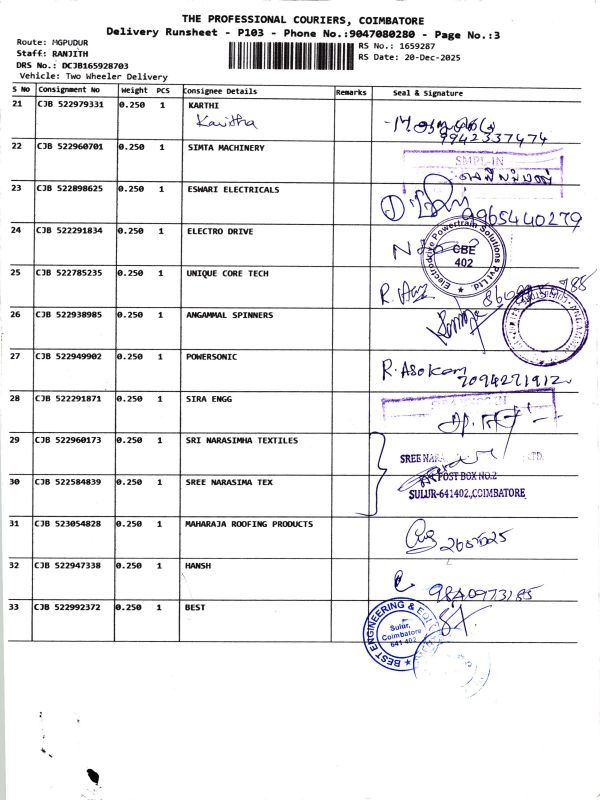 THE PROFESSIONAL COURIERS, COIMBATORE
Delivery Runsheet - P103 - Phone No.:9047080280 - Page No.:3
Route: MGPUDUR
Staff: RANJITH
DRS No.: DCJB165928703
Vehicle: Two Wheeler Delivery
RS No.: 1659287
RS Date: 20-Dec-2025
S No Consignment No Weight PCS Consignee Details Remarks Seal & Signature
21 CJB 522979331 0.250 1 KARTHI
Kavitha
9942337474
22 CJB 522960701 0.250 1 SIMTA MACHINERY
SMPL-IN
23 CJB 522898625 0.250 1 ESWARI ELECTRICALS
9965440279
24 CJB 522291834 0.250 1 ELECTRO DRIVE
Electrodrive Powertrain Solutions Pvt Ltd
CBE
402
25 CJB 522785235 0.250 1 UNIQUE CORE TECH
26 CJB 522938985 0.250 1 ANGAMMAL SPINNERS
27 CJB 522949902 0.250 1 POWERSONIC
R. Asokam
7094271912
28 CJB 522291871 0.250 1 SIRA ENGG
29 CJB 522960173 0.250 1 SRI NARASIMHA TEXTILES
SREE
POST BOX NO.2
SULUR-641402.,COIMBATORE
30 CJB 522584839 0.250 1 SREE NARASIMA TEX
31 CJB 523054828 0.250 1 MAHARAJA ROOFING PRODUCTS
32 CJB 522947338 0.250 1 HANSH
9840973185
33 CJB 522992372 0.250 1 BEST
BEST ENGINEERING &
Sulur,
Coimbatore
641 402